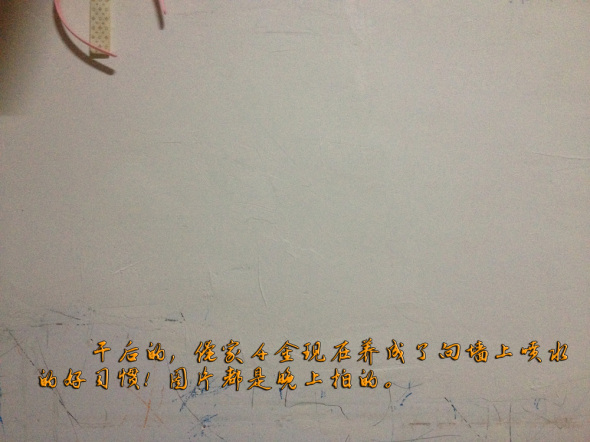 干后的，俺家千金现在养成了向墙上喷水
的好习惯！图片都是晚上拍的。